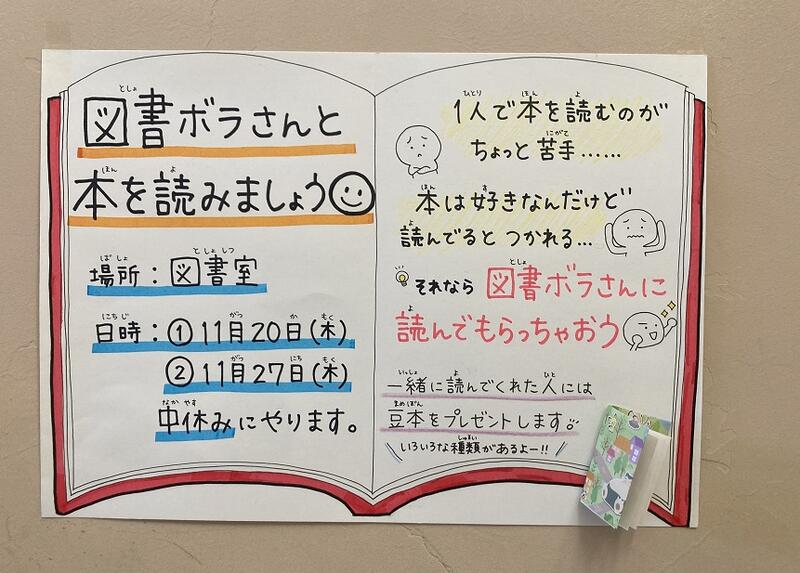 図書ボラさんと
本を読みましょう
場所：図書室
日時：①11月20日(木)
②11月27日(木)
中休みにやります。
1人で本を読むのが
ちょっと苦手……
本は好きなんだけど
読んでるとつかれる…
それなら図書ボラさんに
読んでもらっちゃおう
一緒に読んでくれた人には
豆本をプレゼントします。
いろいろな種類があるよー!!